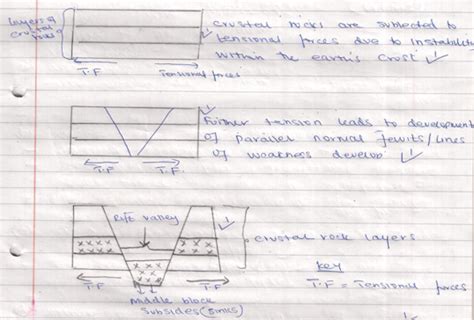 Layers of
crustal
rocks
crustal rocks are subjected to
tensional forces due to instability
within the earth's crust
T.F
Tensional forces
Further tension leads to development
of parallel normal fewits/lines
of weakness develop
T.F
T.F
Rift valley
crustal rock layers
T.F
T.F
Middle block
subsides (sinks)
Key
T.F = Tensional forces